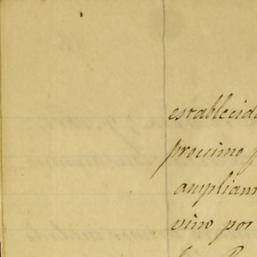 establecid
procsimo p
ampliam
vino por